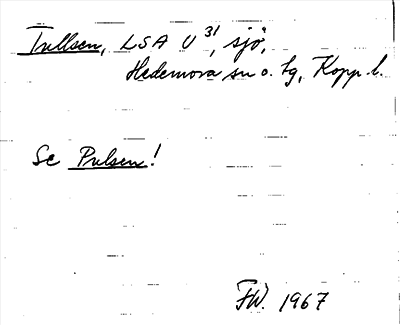 Trullsen, LSA U 31, sjö,
Hedemora sn o. tg, Kopp. l.
Se Pulsen!
FW. 1967